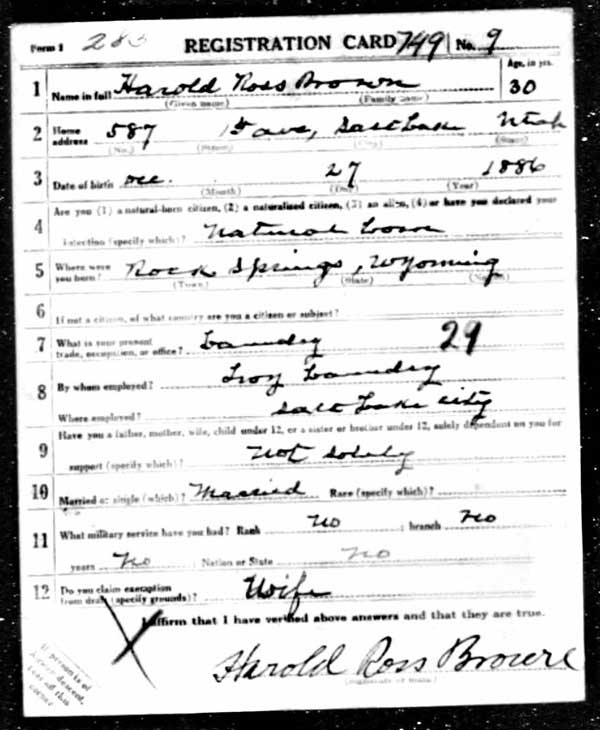 Form 1 REGISTRATION CARD 749 No. 9
Age, in yrs.
1 Name in full Harold Ross Brown 30
(Given name) (Family name)
2 Home address 587 1st ave, Salt Lake Utah
(No.) (Street) (City) (State)
3 Date of birth Dec. 27 1886
(Month) (Day) (Year)
4 Are you (1) a natural-born citizen, (2) a naturalized citizen, (3) an alien, (4) or have you declared your
intention (specify which)? Natural born
5 Where were you born? Rock Springs, Wyoming
(Town) (State) (Nation)
6 If not a citizen, of what country are you a citizen or subject?
7 What is your present trade, occupation, or office? Laundry 29
8 By whom employed? Troy Laundry
Where employed? Salt Lake City
9 Have you a father, mother, wife, child under 12, or a sister or brother under 12, solely dependent on you for
support (specify which)? Not Solely
10 Married or single (which)? Married Race (specify which)?
11 What military service have you had? Rank No ; branch No
years No Nation or State No
12 Do you claim exemption from draft (specify grounds)? Wife
I affirm that I have verified above answers and that they are true.
X
Harold Ross Brown
(Signature or mark)
If person is of
African descent,
tear off this
corner